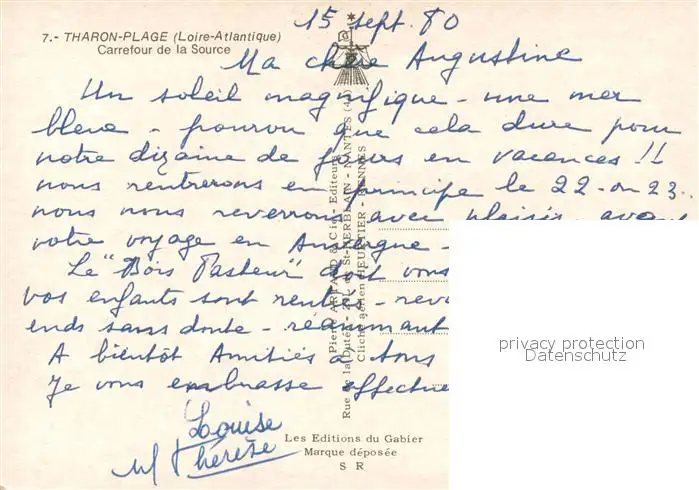 15 sept. 80
7.- THARON-PLAGE (Loire-Atlantique)
Carrefour de la Source
Ma chère Augustine
Un soleil magnifique - une mer
bleue - pourvu que cela dure pour
notre dizaine de jours en vacances !!
nous rentrerons en principe le 22 - ou 23 -
nous nous reverrons avec plaisir avant
votre voyage en Auvergne -
Le "Bois Pasteur" doit vous
vos enfants sont rentrés -
ends sans doute - réanimant
A bientôt Amitiés à tous
Je vous embrasse
Louise
M Thérèse
Pierre ARTAUD & Cie - Editeurs
Rue de la Dutée - 291 - St-HERBLAIN - NANTES
Cliché aérien HEURTIER - RENNES
Les Editions du Gabier
Marque déposée
S R
privacy protection
Datenschutz